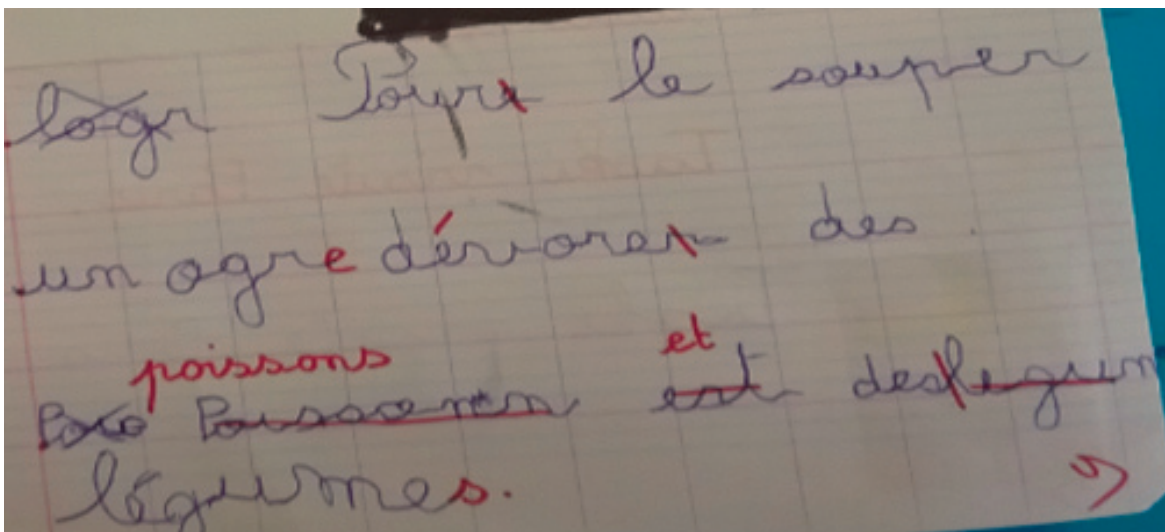 logr Pour le souper
un ogre dévorer des
poissons et
Poissonen est des legum
légumes.